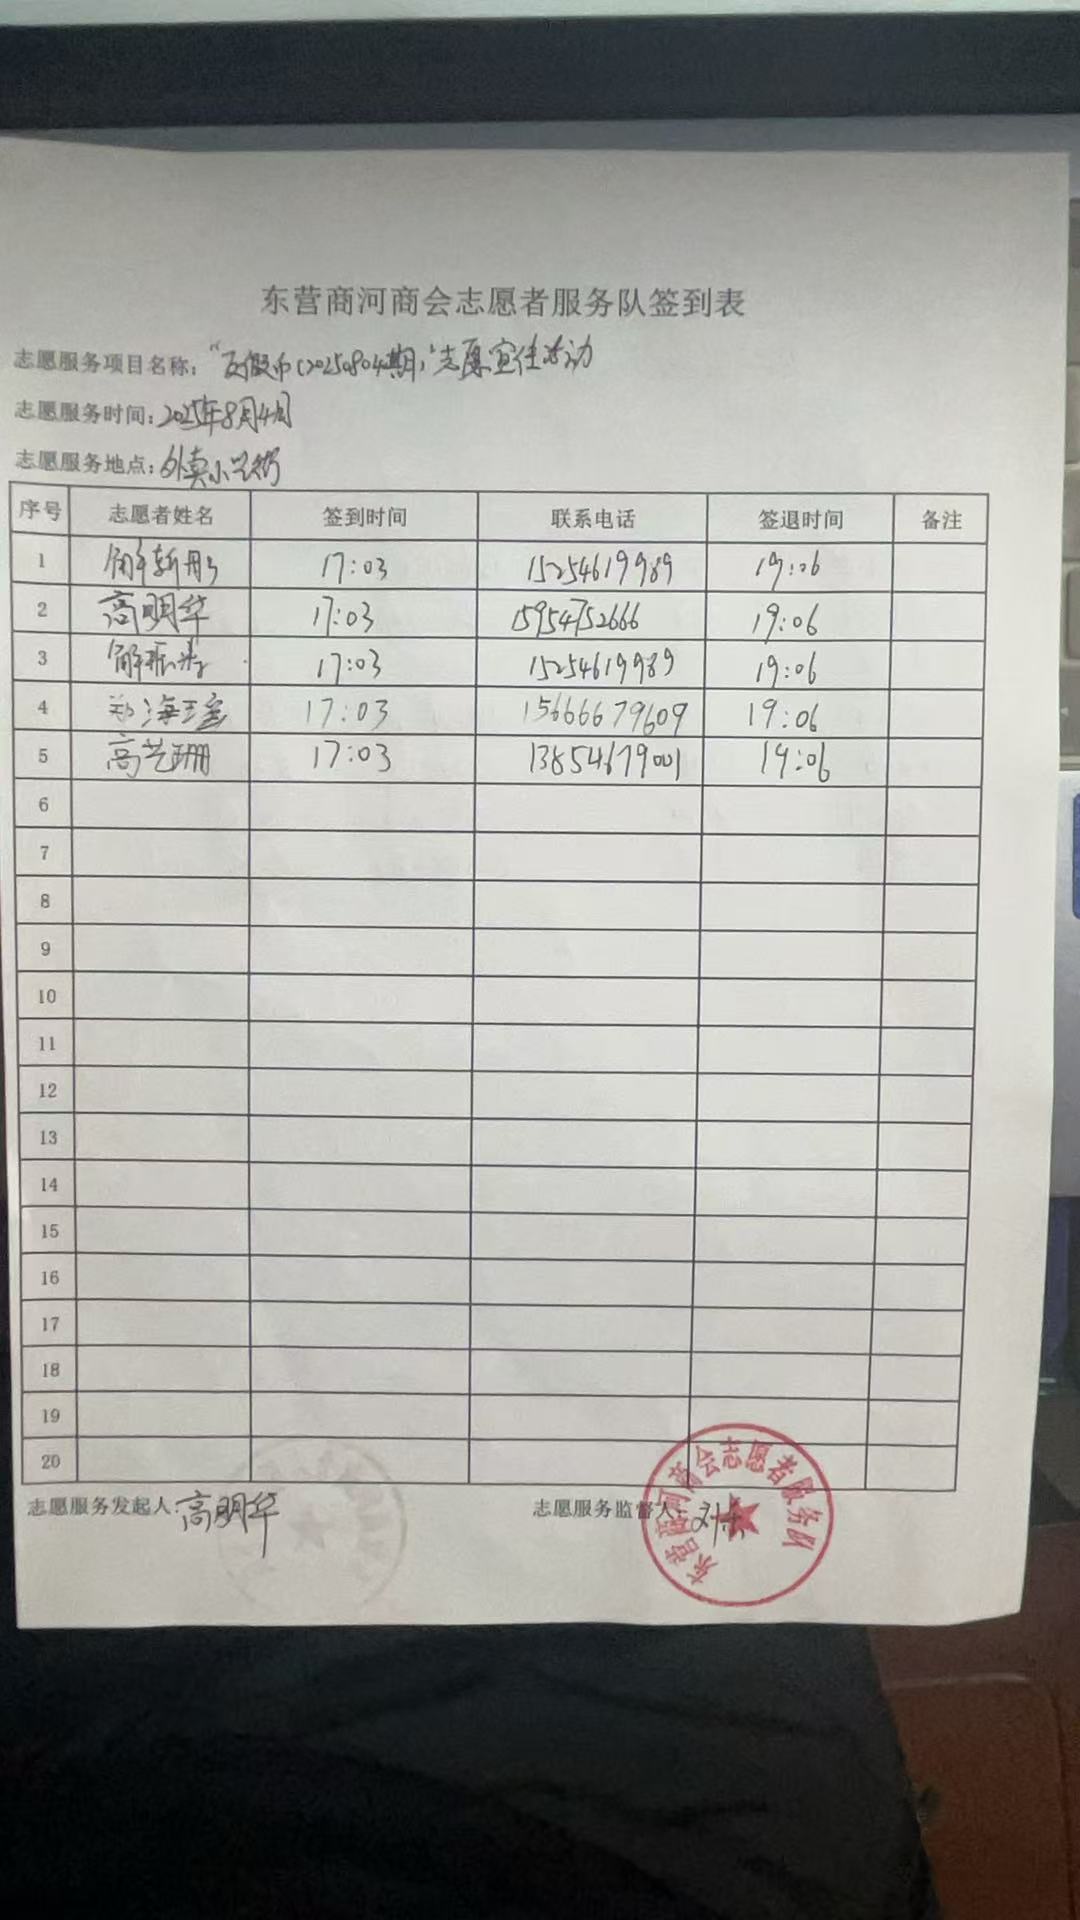 东营商河商会志愿者服务队签到表
志愿服务项目名称："反假币(20250804期)"志愿宣传活动
志愿服务时间：2025年8月4日
志愿服务地点：外卖小
序号 志愿者姓名 签到时间 联系电话 签退时间 备注
1 解 17:03 15254619989 19:06
2 高明华 17:03 15954752666 19:06
3 解振 17:03 15254619989 19:06
4 郑海瑶 17:03 15666679609 19:06
5 高艺珊 17:03 13854679001 19:06
6
7
8
9
10
11
12
13
14
15
16
17
18
19
20
志愿服务发起人：高明华 志愿服务监督人：刘
东营商河商会志愿者服务队